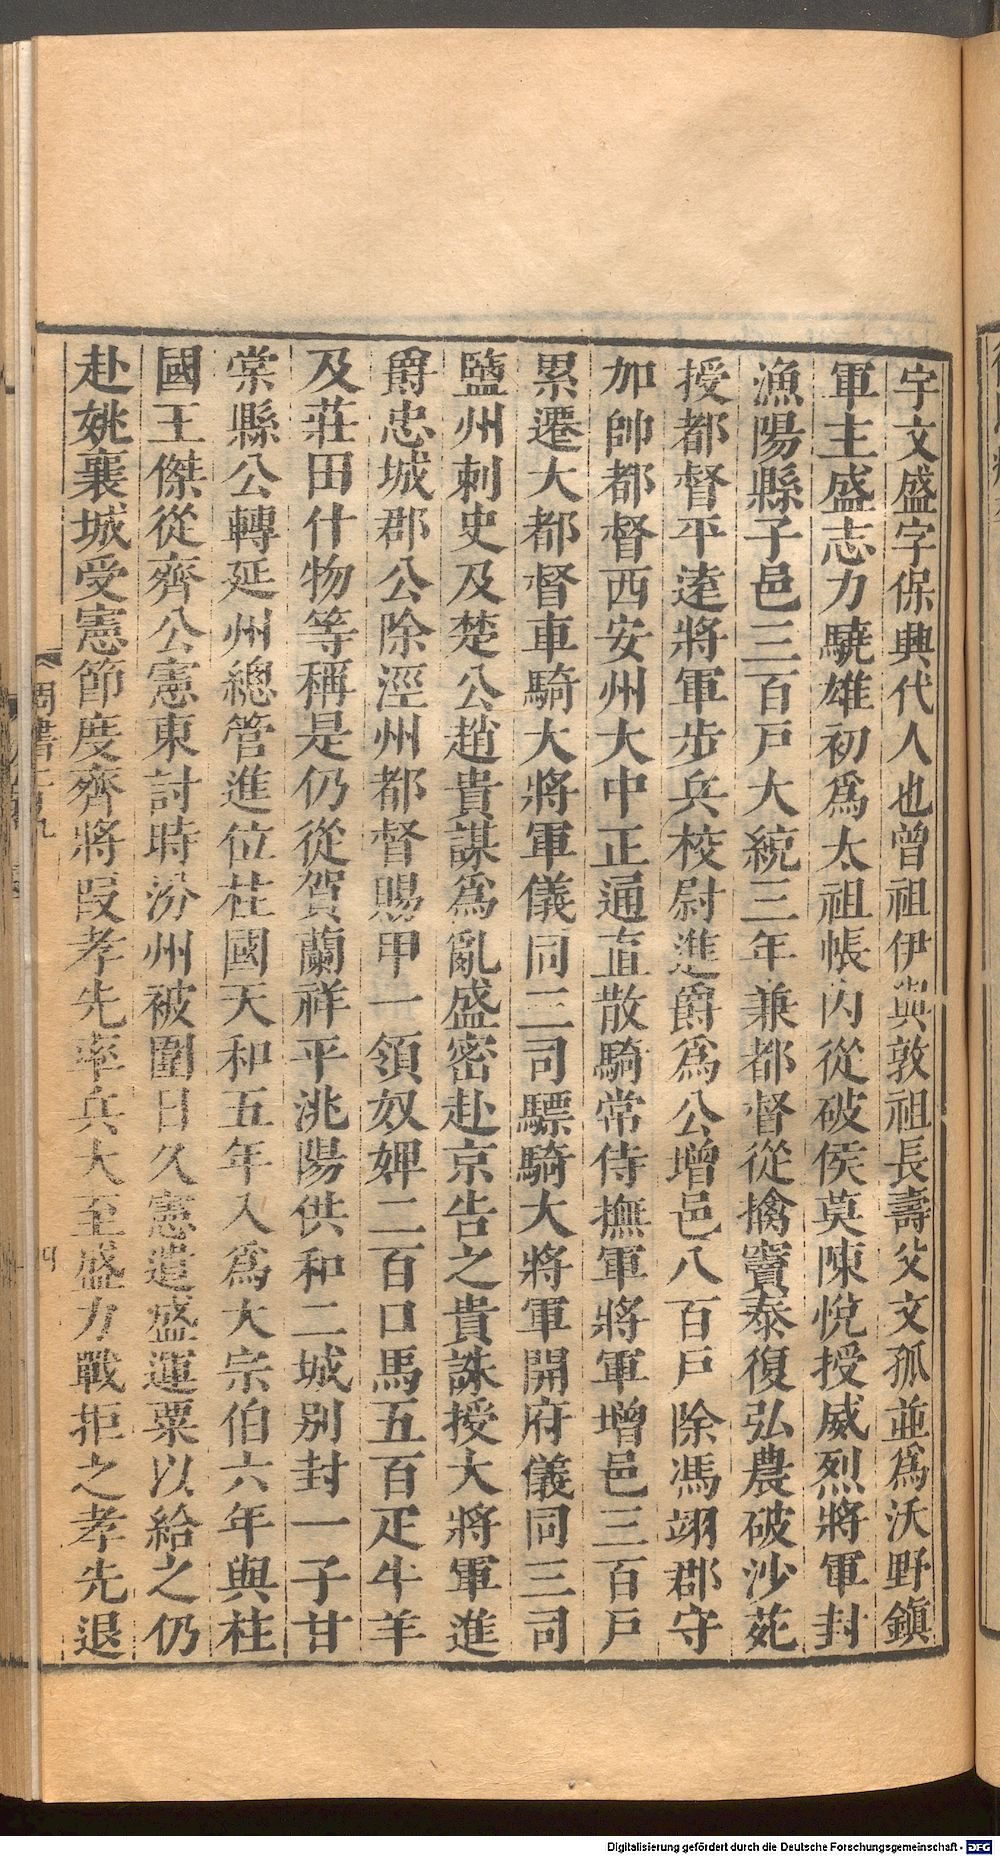 宇文盛字保興代人也曾祖伊與敦祖長壽父文孤並爲沃野鎮
軍主盛志力驍雄初爲太祖帳內從破侯莫陳悅授威烈將軍封
漁陽縣子邑三百戶大統三年兼都督從擒竇泰復弘農破沙苑
授都督平遠將軍步兵校尉進爵爲公增邑八百戶除馮翊郡守
加帥都督西安州大中正通直散騎常侍撫軍將軍增邑三百戶
累遷大都督車騎大將軍儀同三司驃騎大將軍開府儀同三司
鹽州刺史及楚公趙貴謀爲亂盛密赴京告之貴誅授大將軍進
爵忠城郡公除涇州都督賜甲一領奴婢二百口馬五百疋牛羊
及莊田什物等稱是仍從賀蘭祥平洮陽供和二城別封一子甘
棠縣公轉延州總管進位柱國天和五年入爲大宗伯六年與柱
國王傑從齊公憲東討時汾州被圍日久憲遣盛運粟以給之仍
赴姚襄城受憲節度齊將段孝先率兵大至盛力戰拒之孝先退
周書
四
Digitalisierung gefördert durch die Deutsche Forschungsgemeinschaft - DFG